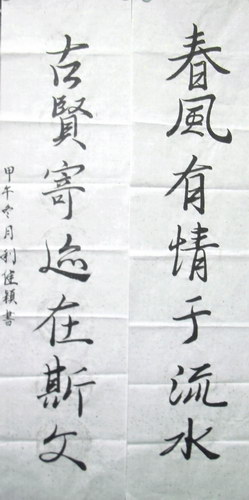 春風有情于流水
古賢寄迹在斯文
甲午冬月利健穎書